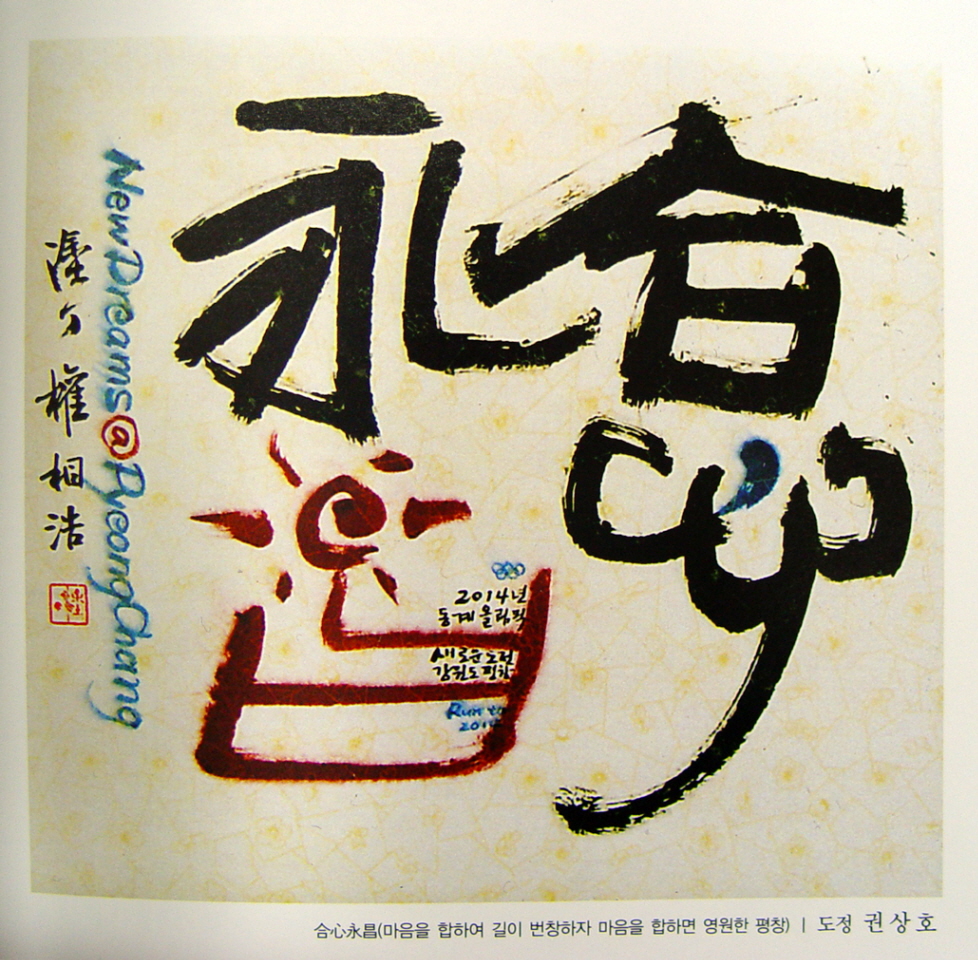 合心永昌
New Dreams@PyeongChang
權相浩
2014년
동계올림픽
새로운도전
강원도평창
Run to
2014
合心永昌(마음을 합하여 길이 번창하자 마음을 합하면 영원한 평창) | 도정 권상호